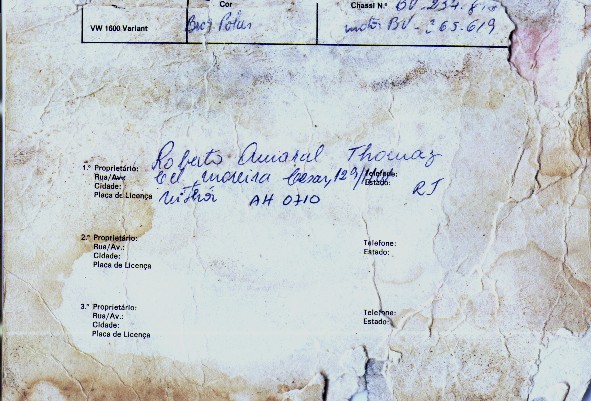 Cor Chassi N.º BV-254.8
VW 1600 Variant motor BV-265.619
1.º Proprietário: Roberto Amaral Thomaz Telefone:
Rua/Av.: Cel. Moreira Cesar, 129/ Estado: RJ
Cidade: Niterói AH 0710
Placa de Licença
2.º Proprietário: Telefone:
Rua/Av.: Estado:
Cidade:
Placa de Licença
3.º Proprietário: Telefone:
Rua/Av.: Estado:
Cidade:
Placa de Licença